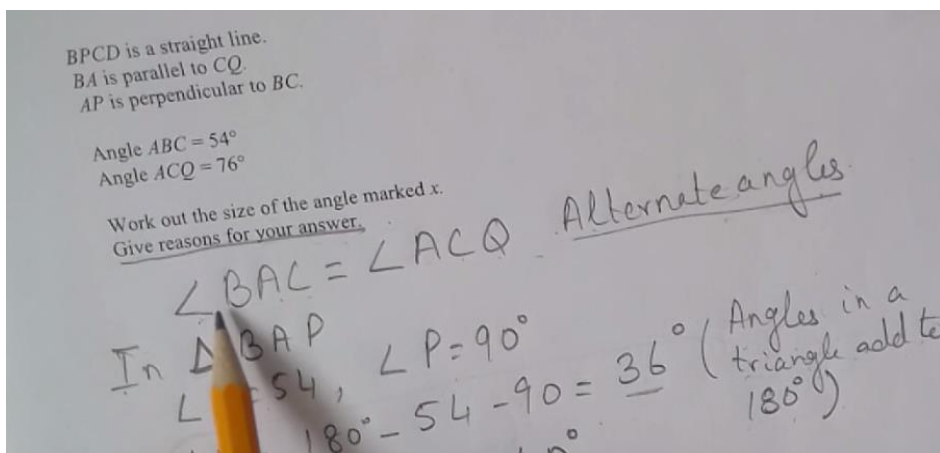 BPCD is a straight line.
BA is parallel to CQ.
AP is perpendicular to BC.
Angle ABC = 54°
Angle ACQ = 76°
Work out the size of the angle marked x.
Give reasons for your answer.
∠BAC = ∠ACQ Alternate angles.
In Δ BAP
∠ = 54, ∠P = 90°
180° - 54 - 90 = 36° (Angles in a triangle add to 180°)